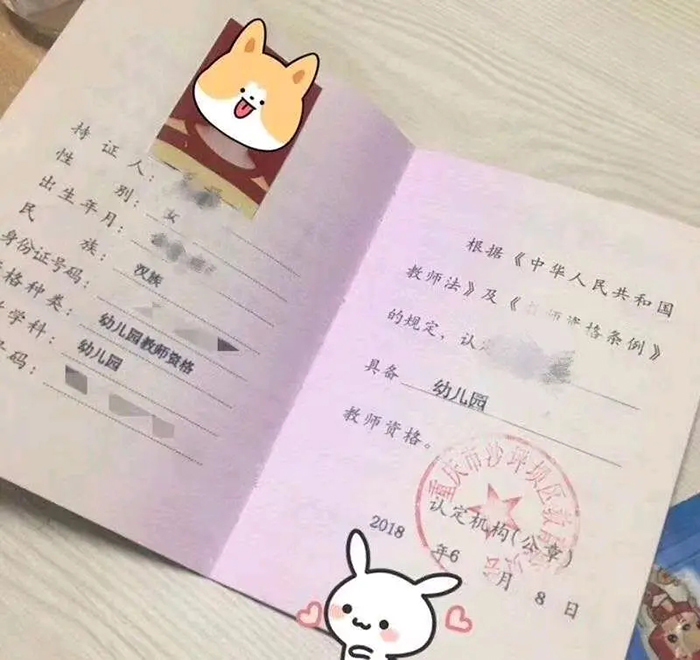 持证人：
性别：女
出生年月：
民族：汉族
身份证号码：
格种类：幼儿园教师资格
学科：幼儿园
码：
根据《中华人民共和国
教师法》及《教师资格条例》
的规定，认定
具备 幼儿园
教师资格。
重庆市沙坪坝区教育
认定机构（公章）
2018年6月8日